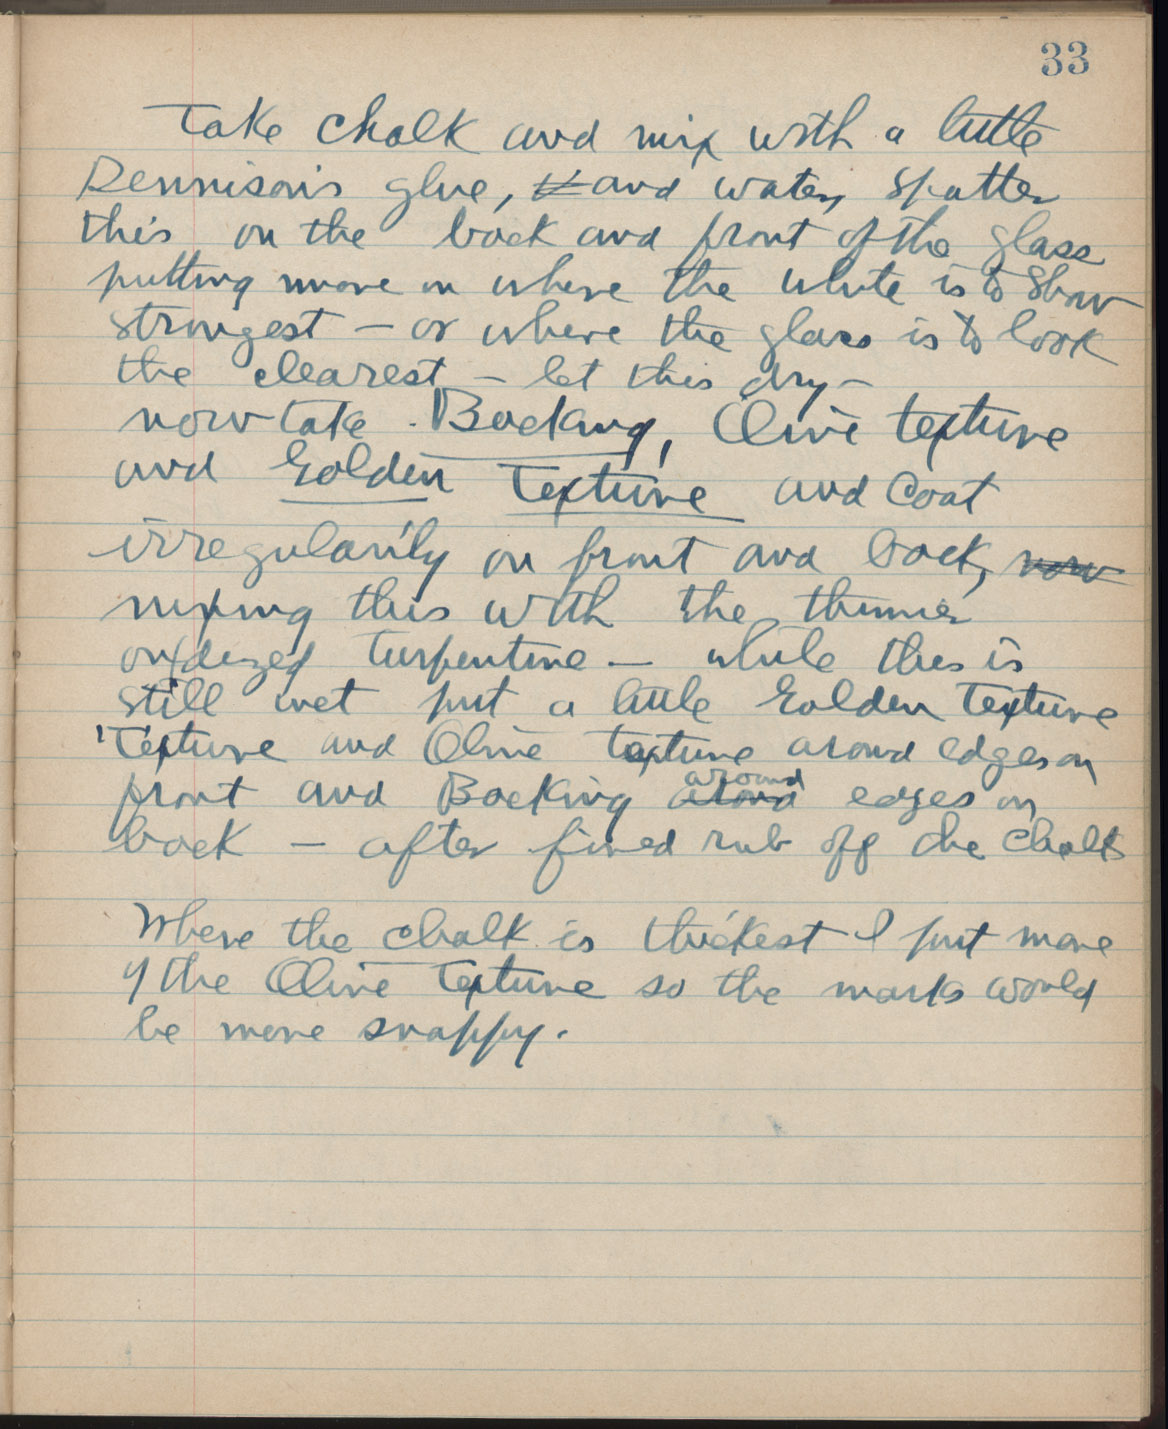 33
Take chalk and mix with a little
Dennison's glue, and water, spatter
this on the back and front of the glass
putting more on where the white is to show
strongest – or where the glass is to look
the clearest – let this dry –
now take Backing, Olive texture
and Golden Texture and Coat
irregularily on front and back, now
mixing this with the thinner
oxidized turpentine – while this is
still wet put a little Golden Texture
Texture and Olive texture around edges on
front and Backing around around edges on
back – after fired rub off the chalk
Where the chalk is thickest I put more
of the Olive Texture so the marks would
be more snappy.